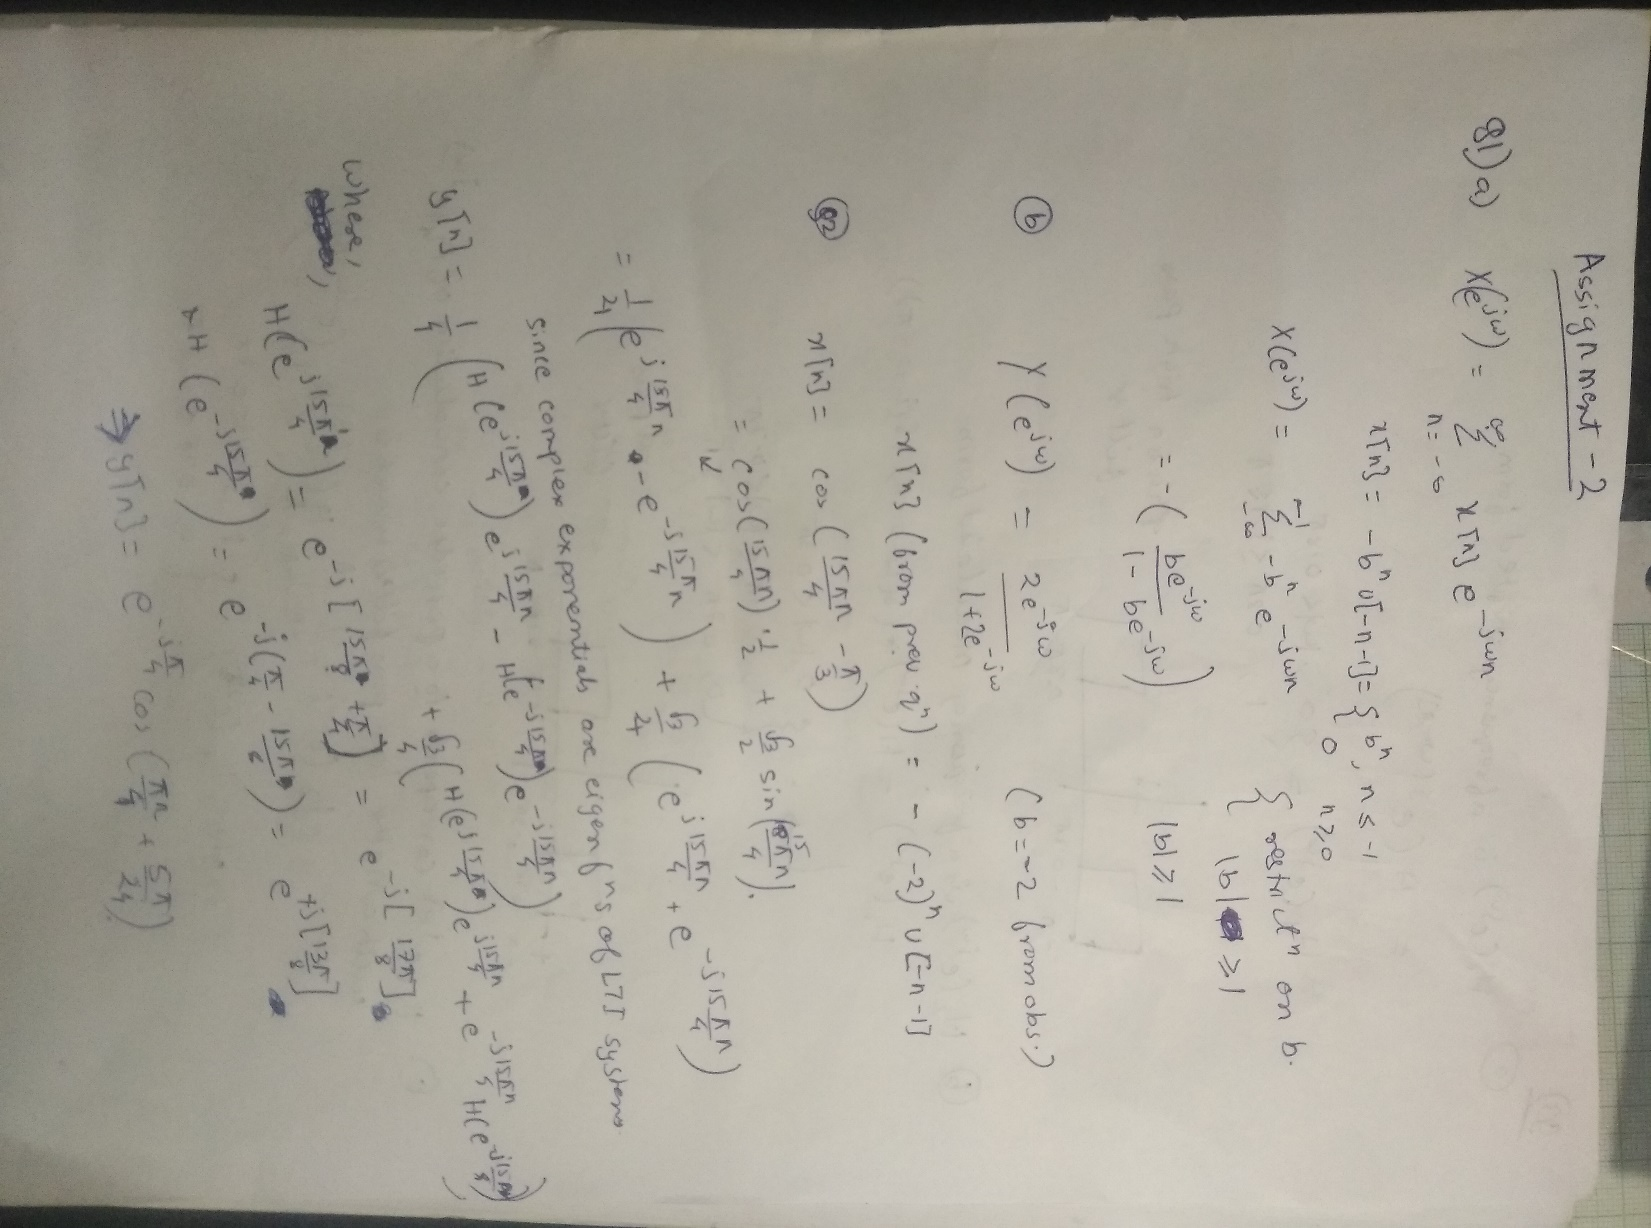 Assignment - 2
Q1) a) X(e^{jω}) = ∑_{n=-∞}^{∞} x[n] e^{-jωn}
x[n] = -b^n u[-n-1] = { b^n, n ≤ -1
0 n ≥ 0
X(e^{jω}) = ∑_{-∞}^{-1} -b^n e^{-jωn} { restrictⁿ on b.
|b| ≥ 1
= - ( be^{-jω} / 1 - be^{-jω} ) |b| ≥ 1
(b) Y(e^{jω}) = 2e^{-jω} / 1+2e^{-jω} (b = -2 from obs.)
x[n] (from prev. qⁿ) = - (-2)^n u[-n-1]
Q2 x[n] = cos ( 15πn/4 - π/3 )
= cos( 15πn/4 ) · 1/2 + √3/2 sin( 15πn/4 ).
= 1/4 ( e^{j 15πn/4} - e^{-j 15πn/4} ) + √3/4 ( e^{j 15πn/4} + e^{-j 15πn/4} )
since complex exponentials are eigen fⁿs of LTI systems
y[n] = 1/4 ( H(e^{j 15π/4}) e^{j 15πn/4} - H(e^{-j 15π/4}) e^{-j 15πn/4} )
+ √3/4 ( H(e^{j 15π/4}) e^{j 15πn/4} + e^{-j 15πn/4} H(e^{-j 15π/4}) )
where,
H( e^{j 15π/4} ) = e^{-j[ 15π/8 + π/4 ]} = e^{-j[ 17π/8 ]}
H ( e^{-j 15π/4} ) = e^{-j( π/4 - 15π/8 )} = e^{+j[ 13π/8 ]}
⇒ y[n] = e^{-jπ/4} cos ( πn/4 + 5π/24 )